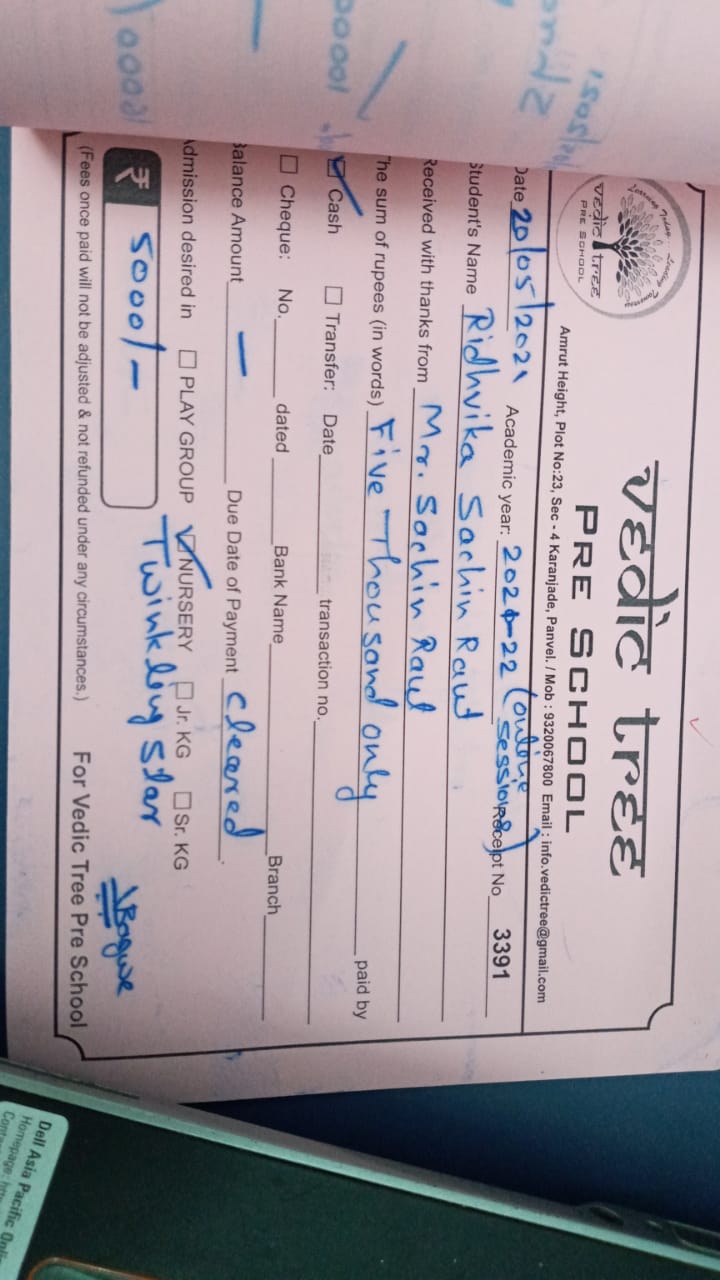 vedic tree
PRE SCHOOL
Learning Today, Leading Tomorrow
vedic tree
PRE SCHOOL
Amrut Height, Plot No:23, Sec - 4 Karanjade, Panvel. / Mob : 9320067800 Email : info.vedictree@gmail.com
Date 20/05/2021 Academic year: 2021-22 (online sessions) Receipt No 3391
Student's Name Ridhvika Sachin Raut
Received with thanks from Mr. Sachin Raut
The sum of rupees (in words) Five Thousand only paid by
Cash Transfer: Date transaction no.
Cheque: No. dated Bank Name Branch
Balance Amount — Due Date of Payment cleared.
Admission desired in PLAY GROUP NURSERY Jr. KG Sr. KG
Twinkling Star
₹ 5000/-
(Fees once paid will not be adjusted & not refunded under any circumstances.) For Vedic Tree Pre School
Dell Asia Pacific
Homepage: